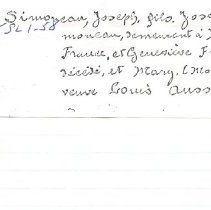 Simoneau, Joseph, fils, Jose
SL 1-58
moneau, demeurant à
France, et Geneviève F
décédé, et Mary,
veuve Louis Auss